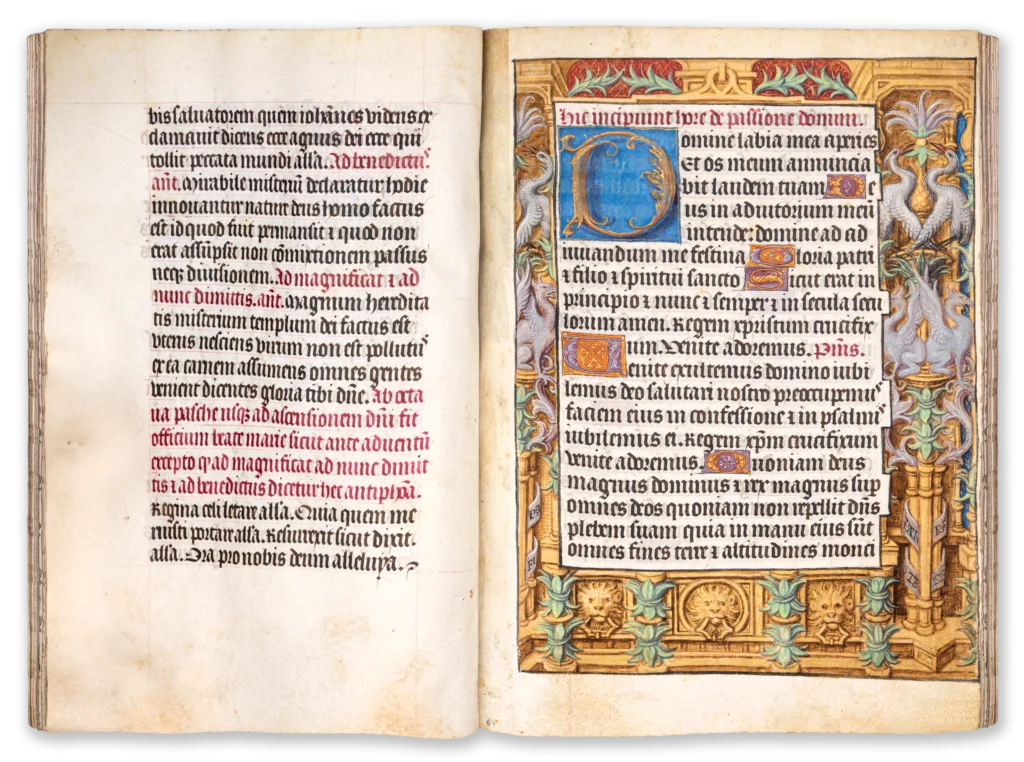 bis saluatorem quem iohãnes videns ex
clamauit dicens ecce agnus dei ecce qui
tollit peccata mundi alla. Ad benedictuˢ
añt. Mirabile misteriũ declaratur hodie
innouantur nature deus homo factus
est id quod fuit permansit et quod non
erat assũpsit non cõmixtionem passus
neqz diuisionem. Ad magnificat et ad
nunc dimittis. añt. Magnum heredita
tis misterium templum dei factus est
vterus nesciens virum non est pollutuˢ
ex ea carnem assumens omnes gentes
venient dicentes gloria tibi dñe. Ab octa
ua pasche usqz ad ascensionem dñi fit
officium beate marie sicut ante aduentũ
excepto qz ad magnificat ad nunc dimit
tis et ad benedictus dicetur hec antiphona.
Regina celi letare alla. Quia quem me
ruisti portare alla. Resurrexit sicut dixit.
alla. Ora pro nobis deum alleluya.
Hic incipiunt hore de passione domini.
Domine labia mea aperies
Et os meum annuncia
bit laudem tuam De
us in adiutorium meũ
intende: domine ad ad
iuuandum me festina Gloria patri
et filio et spiritui sancto Sicut erat in
principio et nunc et semper et in secula secu
lorum amen. Regem xpristum crucifix
um. Venite adoremus. Psms.
Uenite exultemus domino iubi
lemus deo salutari nostro preoccupemuˢ
faciem eius in confessione et in psalmiˢ
iubilemus ei. Regem xpm crucifixum
venite adoremus. Quoniam deus
magnus dominus et rex magnus sup
omnes deos quoniam non repellit dñs
plebem suam quia in manu eius sũt
omnes fines terre et altitudines monti